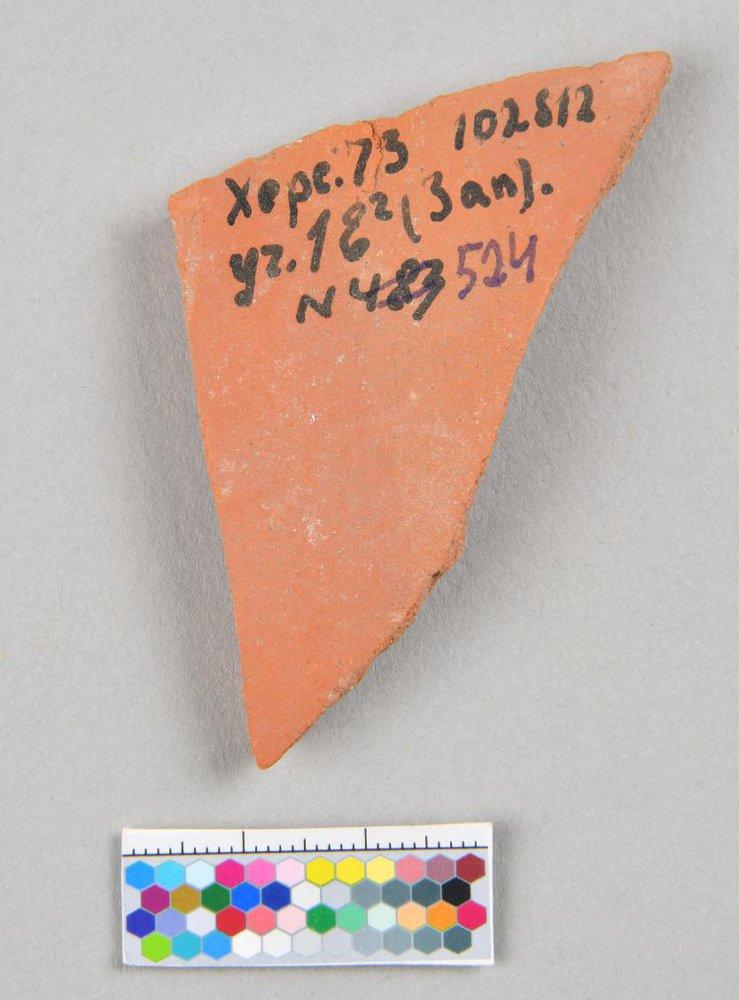 Херс. 73 102812
уч. 18² (Зап).
N 483 524